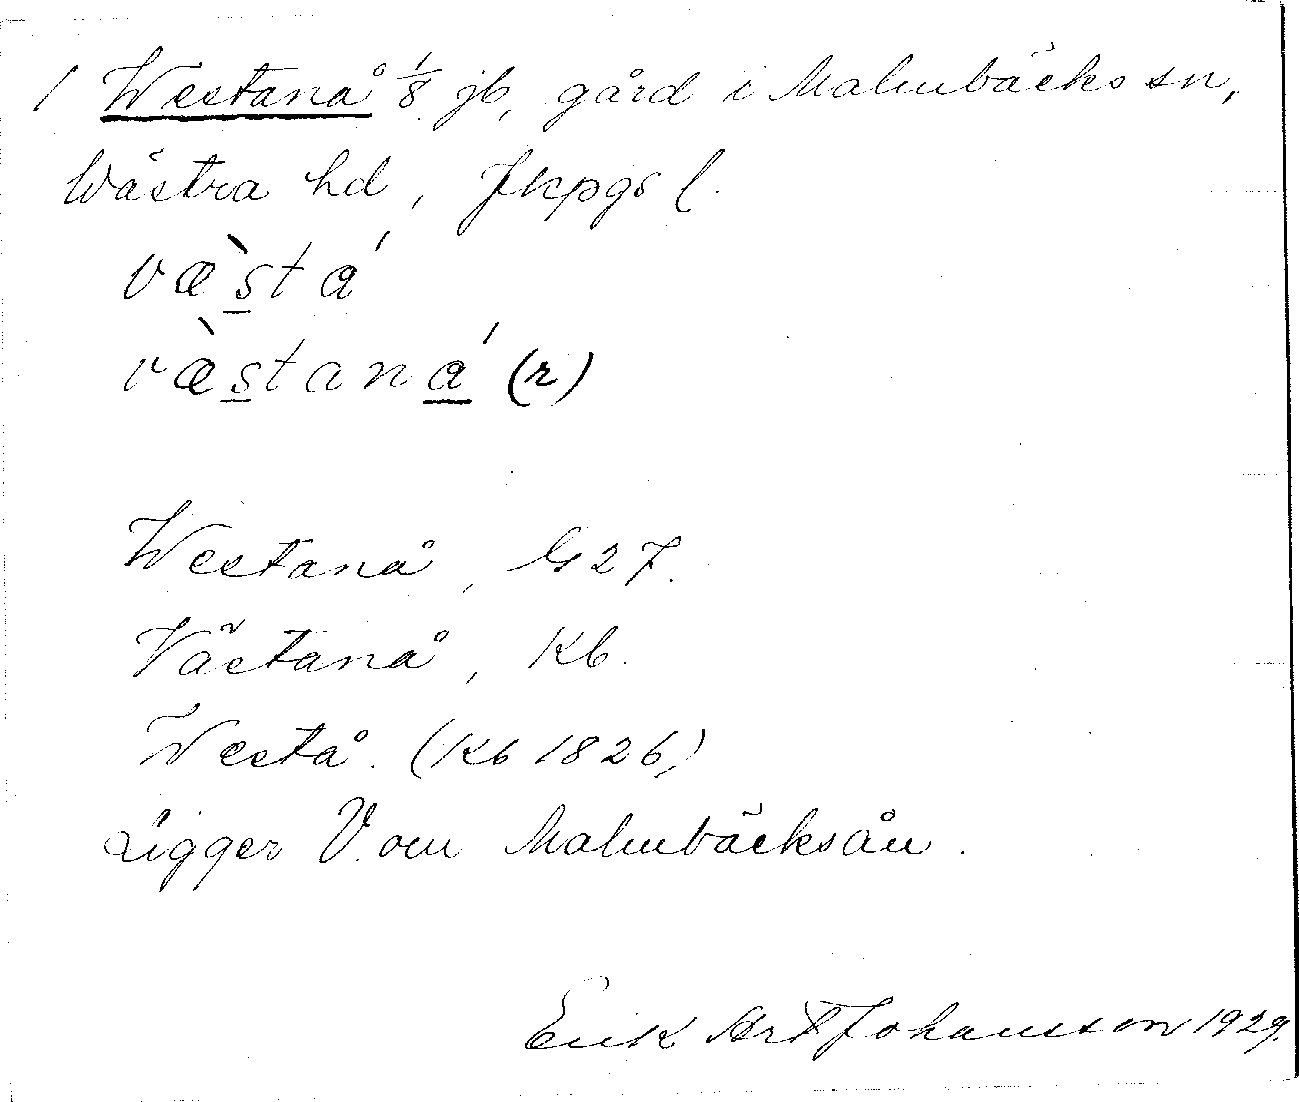 1 Westanå 1/8 jb, gård i Malmbäcks sn,
Västra hd, Jkpgs l.
væ̀stá
væ̀staná (r)
Westanå, G 27.
Västanå, Kb.
Westå. (Kb 1826)
Ligger V. om Malmbäcksån.
Erik Art Johansson 1929.